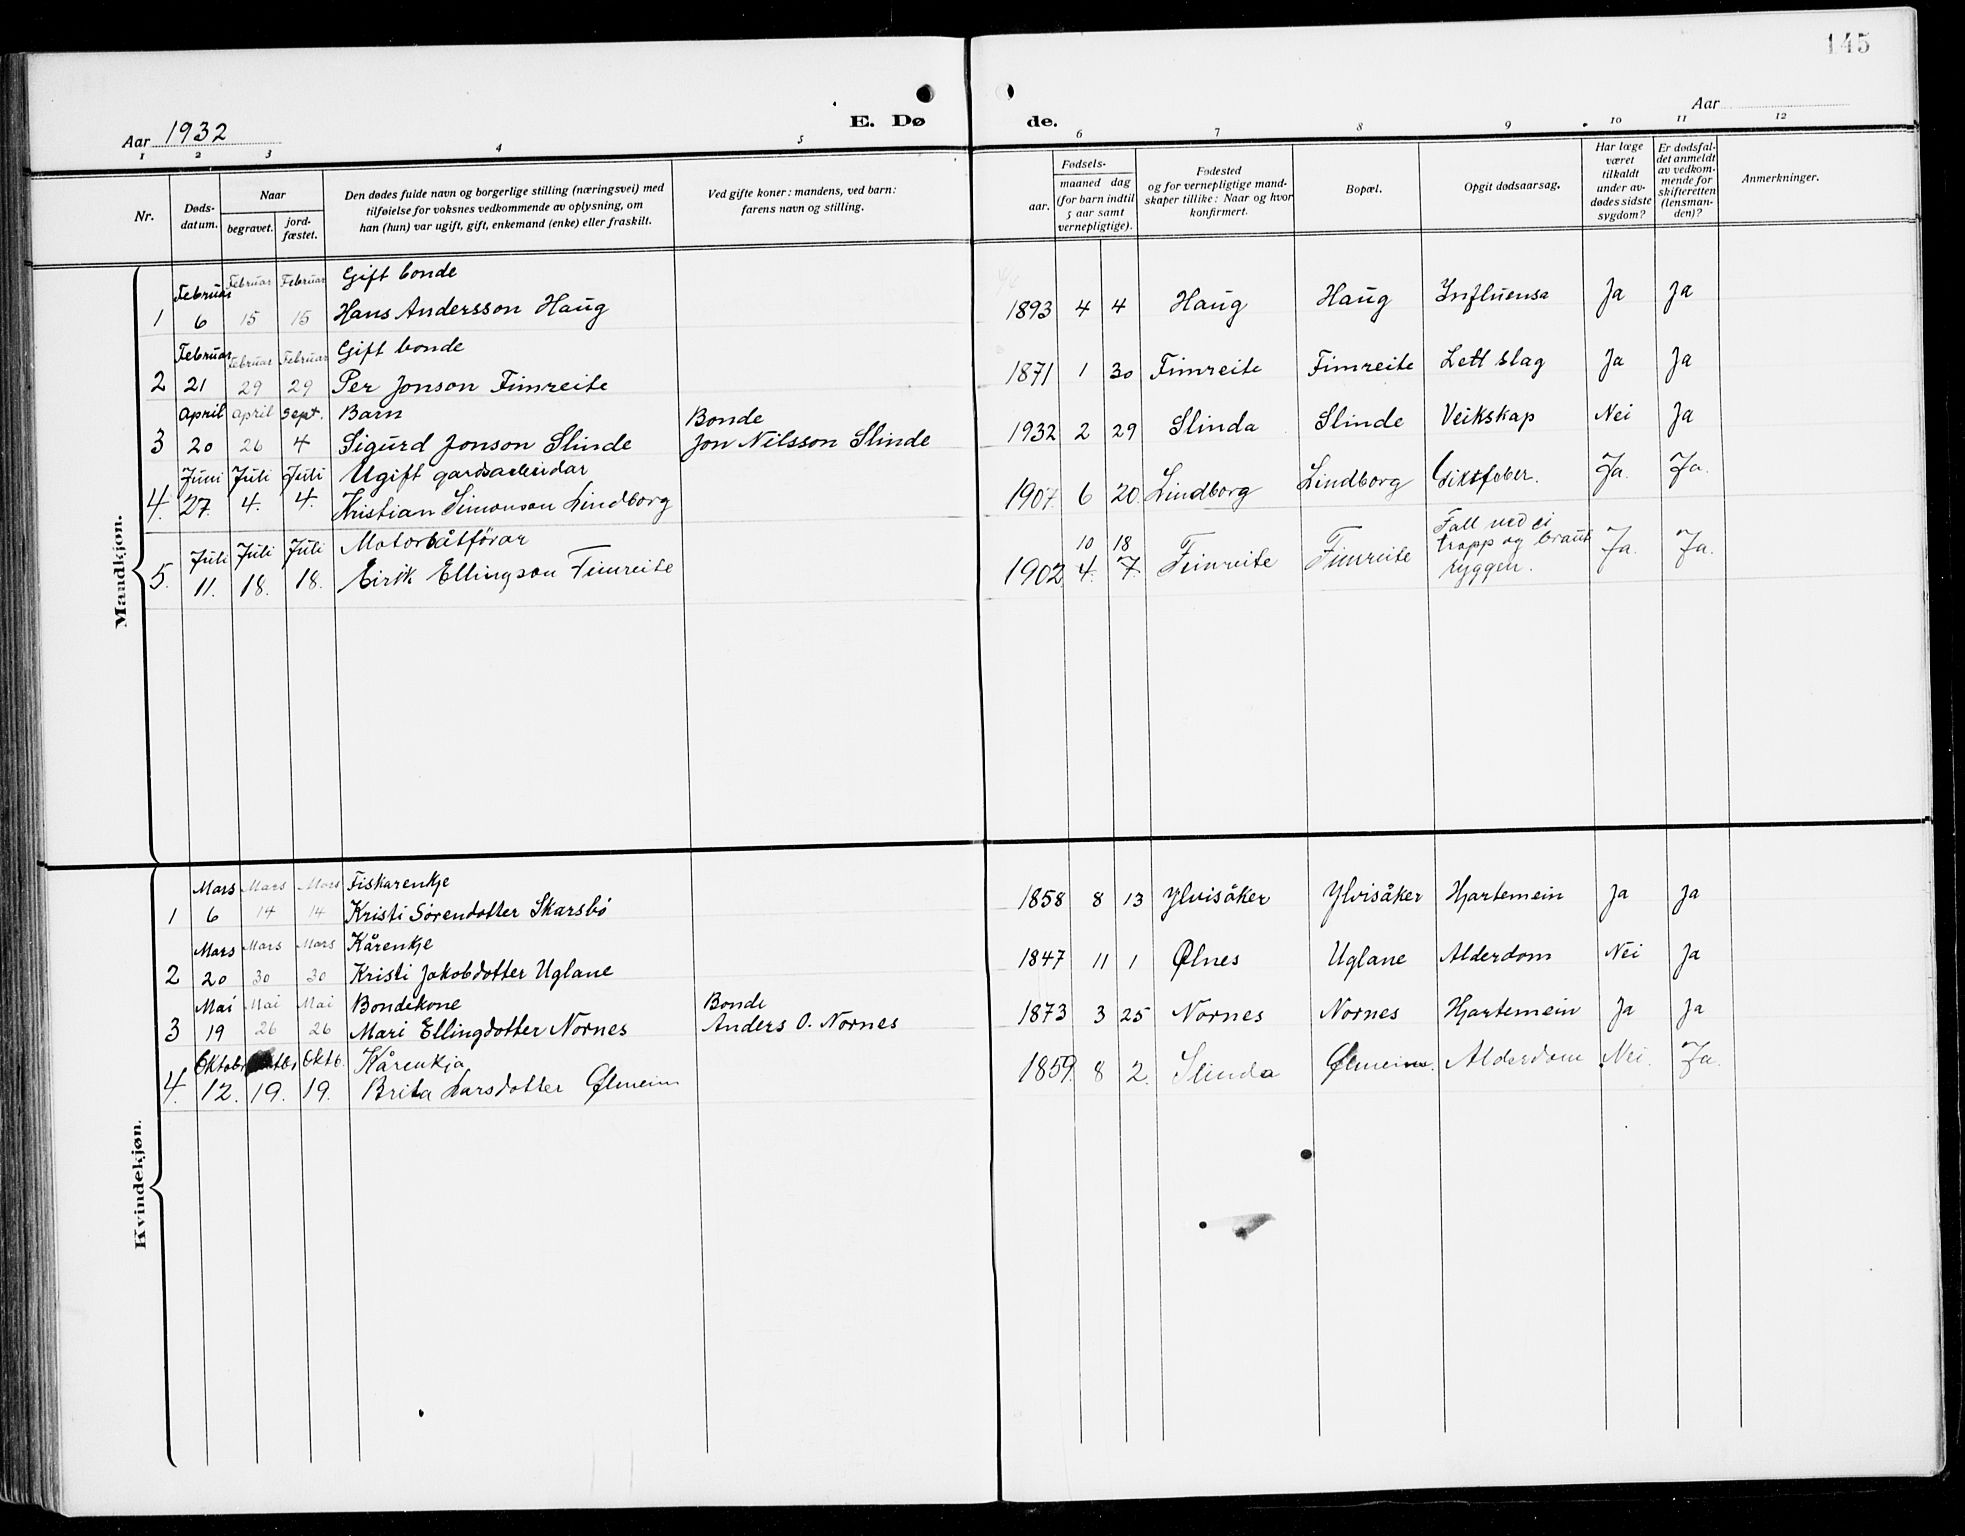 145
Aar 1932
E. Dø de.
Aar
1 2 3 4 5 6 7 8 9 10 11 12
Nr.
Døds-
datum.
Naar
begravet.
jord-
fæstet.
Den dødes fulde navn og borgerlige stilling (næringsvei) med
tilføielse for voksnes vedkommende av oplysning, om
han (hun) var ugift, gift, enkemand (enke) eller fraskilt.
Ved gifte koner: mandens, ved barn:
farens navn og stilling.
Fødsels-
aar.
maaned dag
(for barn indtil
5 aar samt
vernepligtige).
Fødested
og for vernepligtige mand-
skaper tillike: Naar og hvor
konfirmert.
Bopæl.
Opgit dødsaarsag.
Har læge
været
tilkaldt
under av-
dødes sidste
sygdom?
Er dødsfal-
det anmeldt
av vedkom-
mende for
skifteretten
(lensman-
den)?
Anmerkninger.
Mandkjøn.
Februar Februar Februar Gift bonde
1 6 15 15 Hans Andersson Haug 1893 4 4 Haug Haug Influensa Ja Ja
Februar Februar Februar Gift bonde
2 21 29 29 Per Jonson Fimreite 1871 1 30 Fimreite Fimreite Lett slag Ja Ja
April April Sept. Barn Bonde
3 20 26 4 Sigurd Jonson Slinde Jon Nilsson Slinde 1932 2 29 Slinda Slinde Veikskap Nei Ja
Juni Juli Juli Ugift gardsarbeidar
4. 27. 4. 4. Kristian Simonson Lindborg 1907. 6 20. Lindborg Lindborg Giktfeber. Ja. Ja.
Juli Juli Juli Motorbåtførar 10 18 Fall ved ei
5. 11. 18. 18. Eirik Ellingson Fimreite 1902. 4. 7. Fimreite Fimreite trapp og braut Ja. Ja.
ryggen.
Kvindekjøn.
Mars Mars Mars Fiskarenkje
1 6 14 14 Kristi Sørendotter Skarsbø 1858 8 13 Ylvisåker Ylvisåker Hjartemein Ja Ja
Mars Mars Mars Kårenkje
2 20 30 30 Kristi Jakobdotter Uglane 1847 11 1 Ølnes Uglane Alderdom Nei Ja
Mai Mai Mai Bondekone Bonde
3 19 26 26 Mari Ellingdotter Nornes Anders O. Nornes 1873 3 25 Nornes Nornes Hjartemein Ja Ja
Oktob. Oktb. Kårenkja
4. 12. 19. 19. Brita Larsdotter Ølmeim 1859. 8 2. Slinda Ølmeim. Alderdom Nei. Ja.